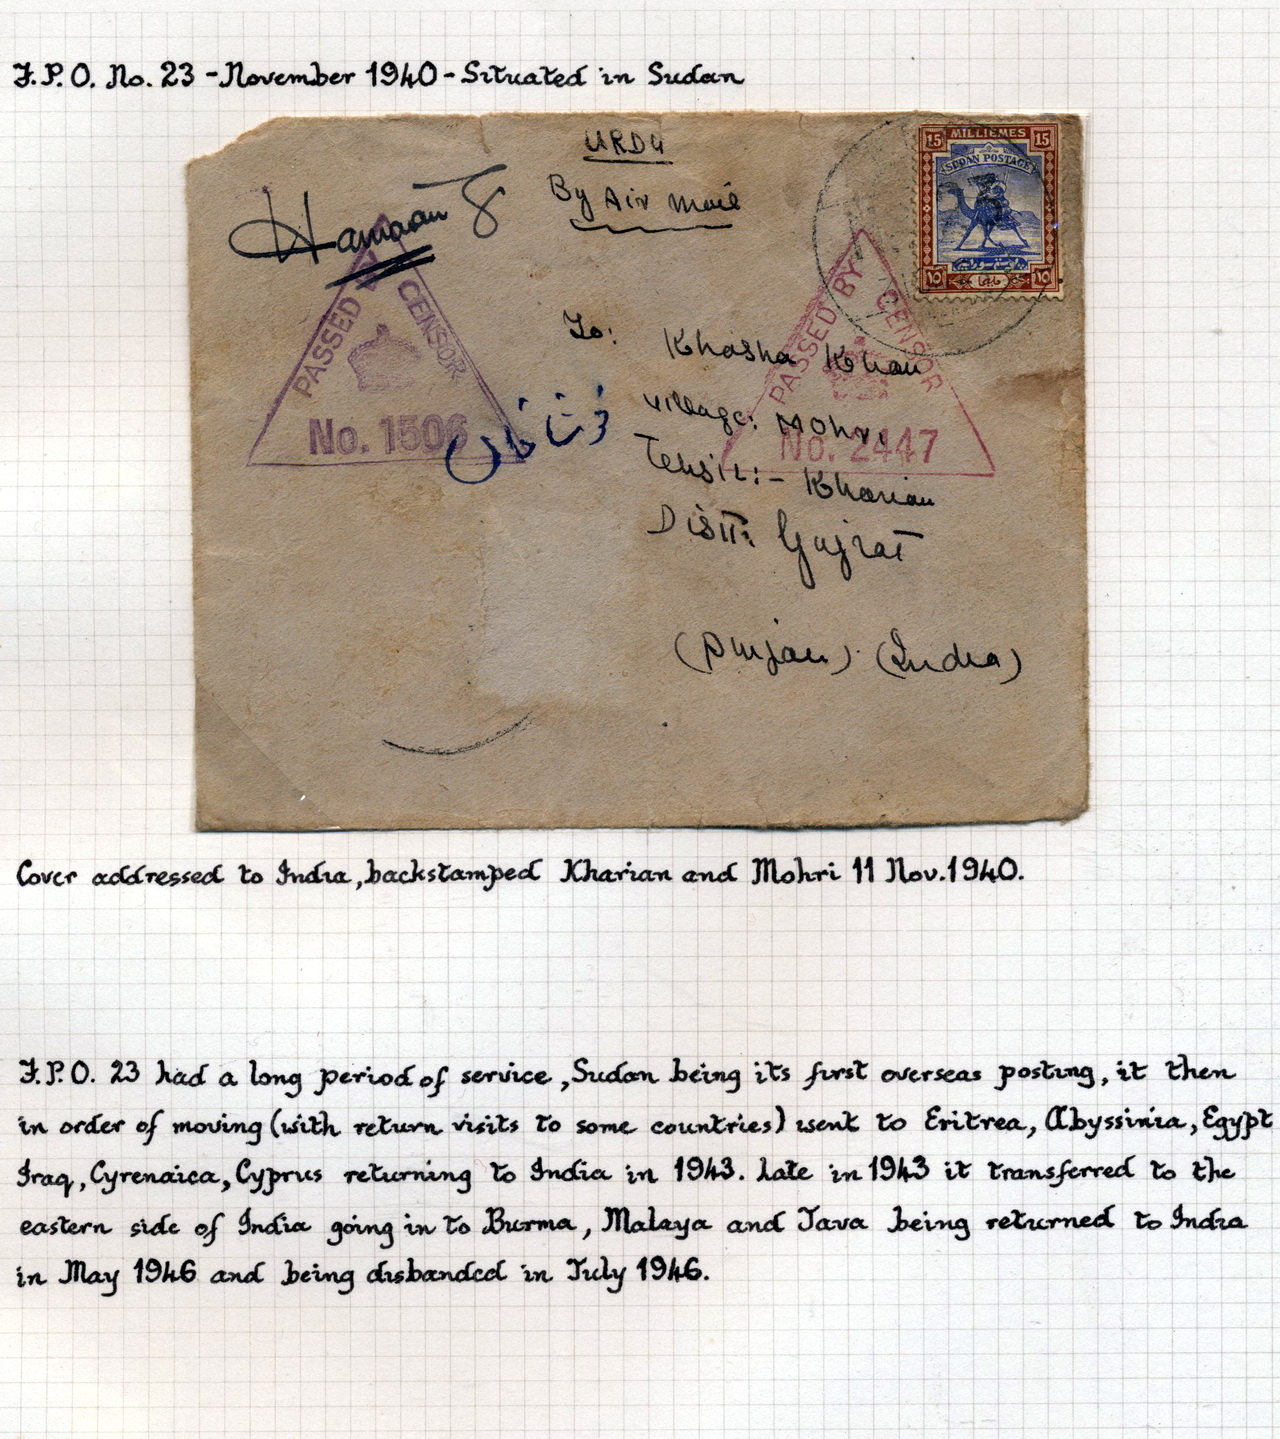 F.P.O. No. 23 - November 1940 - Situated in Sudan
URDU
By Air Mail
15 MILLIEMES 15
SUDAN POSTAGE
١٥ ١٥
PASSED BY CENSOR
No. 1506
PASSED BY CENSOR
No. 2447
To: Khasha Khan
Village: Mohri
Tehsil:- Kharian
Distt: Gujrat
(Punjab) (India)
Cover addressed to India, backstamped Kharian and Mohri 11 Nov. 1940.
F.P.O. 23 had a long period of service, Sudan being its first overseas posting, it then
in order of moving (with return visits to some countries) went to Eritrea, Abyssinia, Egypt
Iraq, Cyrenaica, Cyprus returning to India in 1943. Late in 1943 it transferred to the
eastern side of India going in to Burma, Malaya and Java being returned to India
in May 1946 and being disbanded in July 1946.